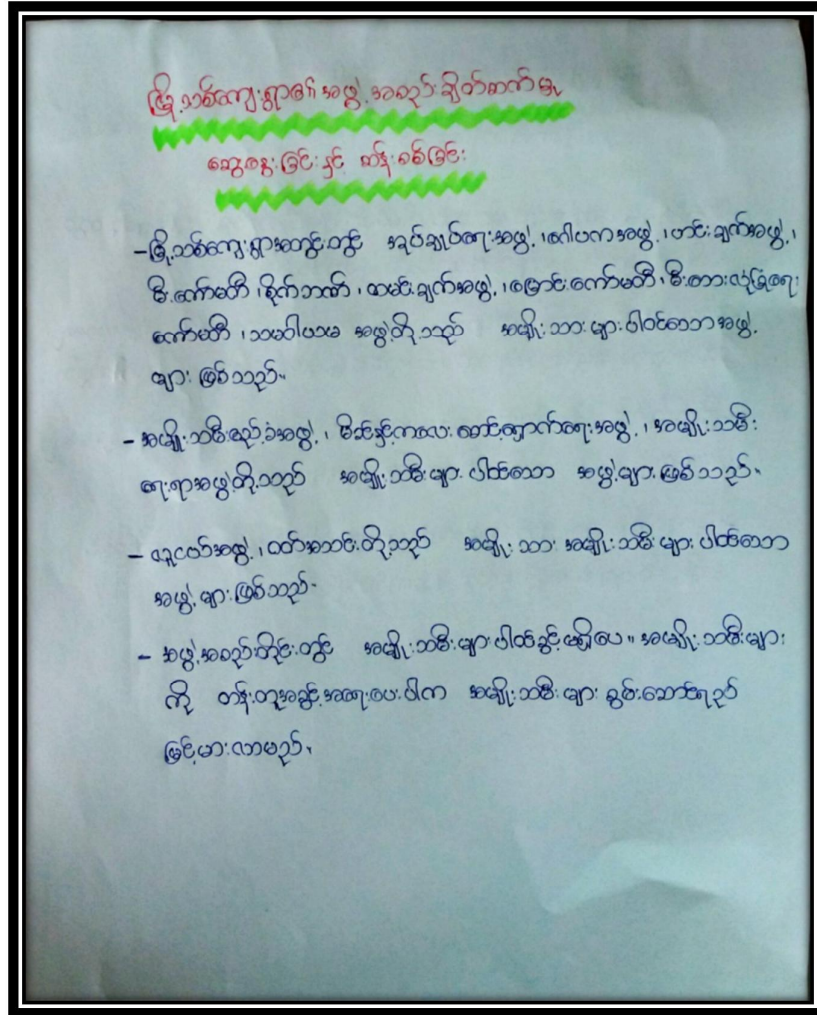 မြို့သစ်ကျေးရွာ၏ အဖွဲ့အစည်းချိတ်ဆက်မှု
ဆွေးနွေးခြင်းနှင့် ဆန်းစစ်ခြင်း
- မြို့သစ်ကျေးရွာအတွင်းတွင် အုပ်ချုပ်ရေးအဖွဲ့၊ ဂေါပကအဖွဲ့၊ ဟင်းချက်အဖွဲ့၊
မီးကော်မတီ၊ စိုက်ဘဏ်၊ ထမင်းချက်အဖွဲ့၊ မြောင်းကော်မတီ၊ မီးဘေးလုံခြုံရေး
ကော်မတီ၊ သမဝါယမ အဖွဲ့တို့သည် အမျိုးသားများပါဝင်သောအဖွဲ့
များ ဖြစ်သည်။
- အမျိုးသမီးဧည့်ခံအဖွဲ့၊ မိခင်နှင့်ကလေး စောင့်ရှောက်ရေးအဖွဲ့၊ အမျိုးသမီး
ရေးရာအဖွဲ့တို့သည် အမျိုးသမီးများ ပါဝင်သော အဖွဲ့များ ဖြစ်သည်။
- လူငယ်အဖွဲ့၊ ဝတ်အသင်းတို့သည် အမျိုးသား အမျိုးသမီးများ ပါဝင်သော
အဖွဲ့များဖြစ်သည်။
- အဖွဲ့အစည်းတိုင်းတွင် အမျိုးသမီးများပါဝင်ခွင့်မရှိပေ။ အမျိုးသမီးများ
ကို တန်းတူအခွင့်အရေးပေးပါက အမျိုးသမီးများ စွမ်းဆောင်ရည်
မြင့်မားလာမည်။